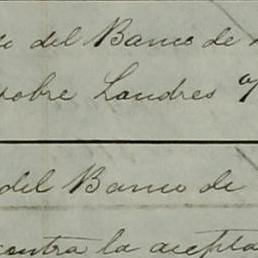 del Banco de
sobre Londres
del Banco de
contra la acepta